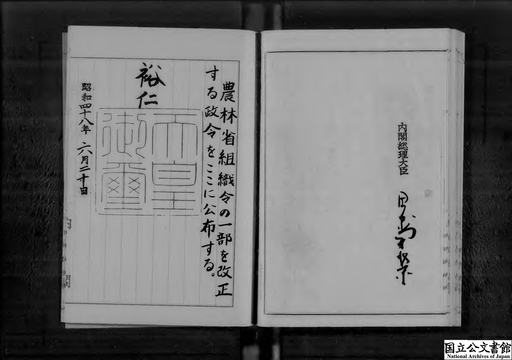 農林省組織令の一部を改正
する政令をここに公布する。
裕仁
天皇
御璽
昭和四十八年 六月二十日
内閣総理大臣
田中角榮
国立公文書館
National Archives of Japan